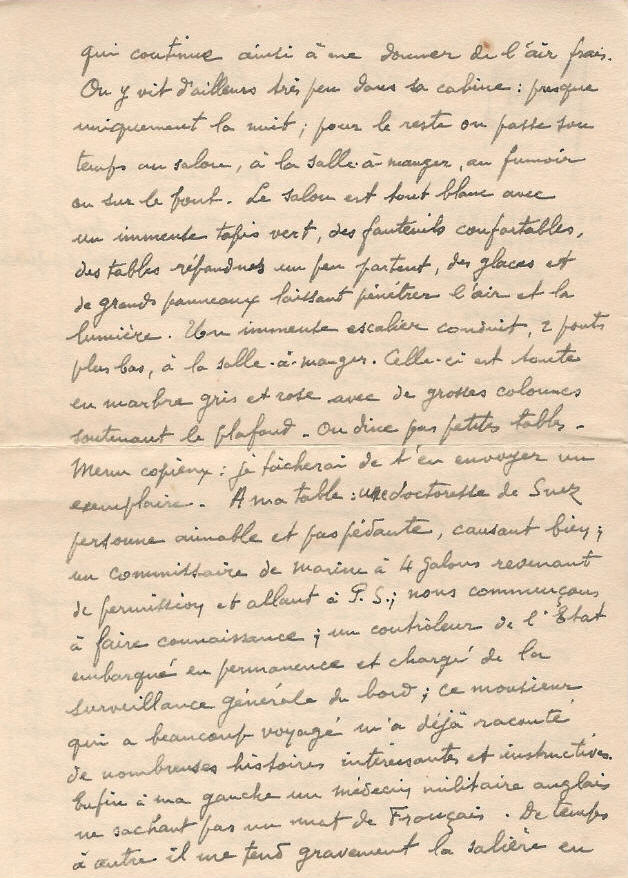 qui continue ainsi à me donner de l'air frais.
On y vit d'ailleurs très peu dans sa cabine : presque
uniquement la nuit ; pour le reste on passe son
temps au salon, à la salle-à-manger, au fumoir
ou sur le pont. Le salon est tout blanc avec
un immense tapis vert, des fauteuils confortables,
des tables répandues un peu partout, des glaces et
de grands panneaux laissant pénétrer l'air et la
lumière. Un immense escalier conduit, 2 ponts
plus bas, à la salle-à-manger. Celle-ci est toute
en marbre gris et rose avec de grosses colonnes
soutenant le plafond - On dîne par petites tables -
Menu copieux : je tâcherai de t'en envoyer un
exemplaire. A ma table : une doctoresse de Suez
personne aimable et pas pédante, causant bien ;
un commissaire de marine à 4 galons revenant
de permission et allant à P. S. ; nous commençons
à faire connaissance ; un contrôleur de l'Etat
embarqué en permanence et chargé de la
surveillance générale du bord ; ce monsieur
qui a beaucoup voyagé m'a déjà raconté
de nombreuses histoires intéressantes et instructives.
Enfin à ma gauche un médecin militaire anglais
ne sachant pas un mot de Français. De temps
à autre il me tend gravement la salière en